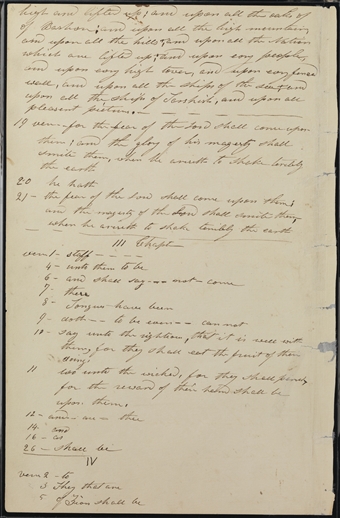 high and lifted up; and upon all the oaks of
of Bashan; and upon all the high mountains,
and upon all the hills; and upon all the Nations
which are lifted up; and upon evry people,
and upon evry high tower, and upon evry fenced
wall, and upon all the ships of the sea; and
upon all the ships of Tarshish, and upon all
pleasant pictures. — — — — — —
19 ver— for the fear of the Lord shall come upon
them; and the glory of his magesty shall
smite them, when he ariseth to shake teribly
the earth
20 he hath
21 – the fear of the Lord shall come upon them;
and the magesty of the Lord shall smite them
when he ariseth to shake teribly the earth
III Chapt—
vers 1 - staff — — — —
4 - unto them to be
6 - and shall say — — not — come
7 - there
8 - Tongues have been
9 - doth — to be even — — cannot
10 - Say unto the righteous, that it is well with
them; for they shall eat the fruit of their
doings;
11 wo unto the wicked, for they shall perish
for the reward of their hands shall be
upon them;
12 - and — are — thee
14 - and
16 - as
26 - shall be
IV
vers 2 - to
3 They that are
5 of Zion shall be